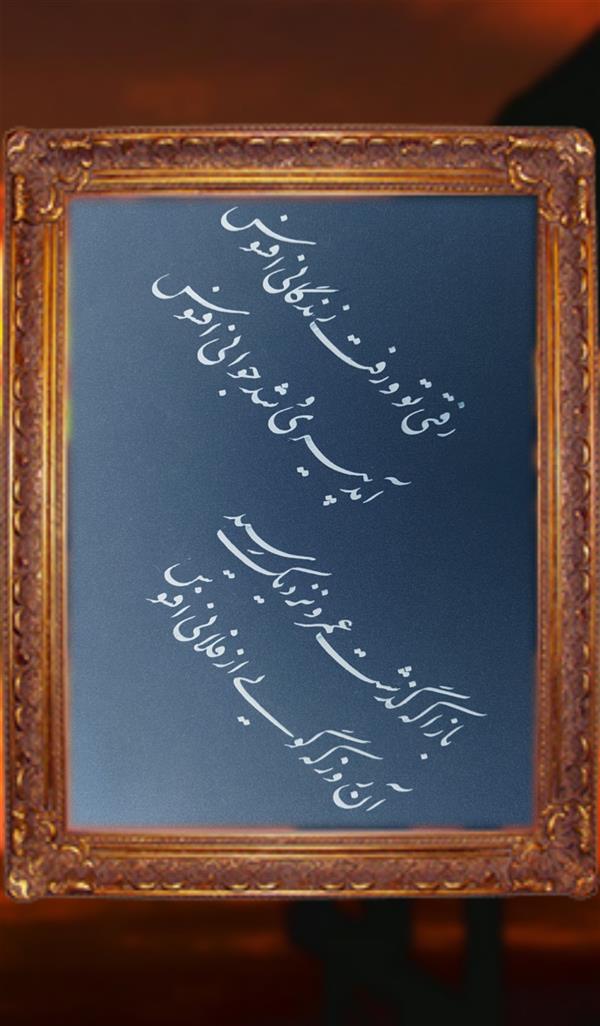 رفتی تو و رفت زندگانی افسوس
آمد پیری و شد جوانی افسوس
بازآ که گذشت عمر و نزدیک رسید
آن روز که گویی از فلانی افسوس